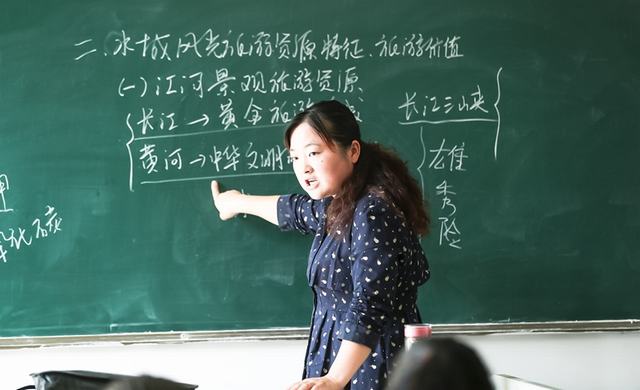 二、水域风光旅游资源特征、旅游价值
(一)江河景观旅游资源
长江→黄金旅游
黄河→中华文明
长江三峡
雄
秀
险